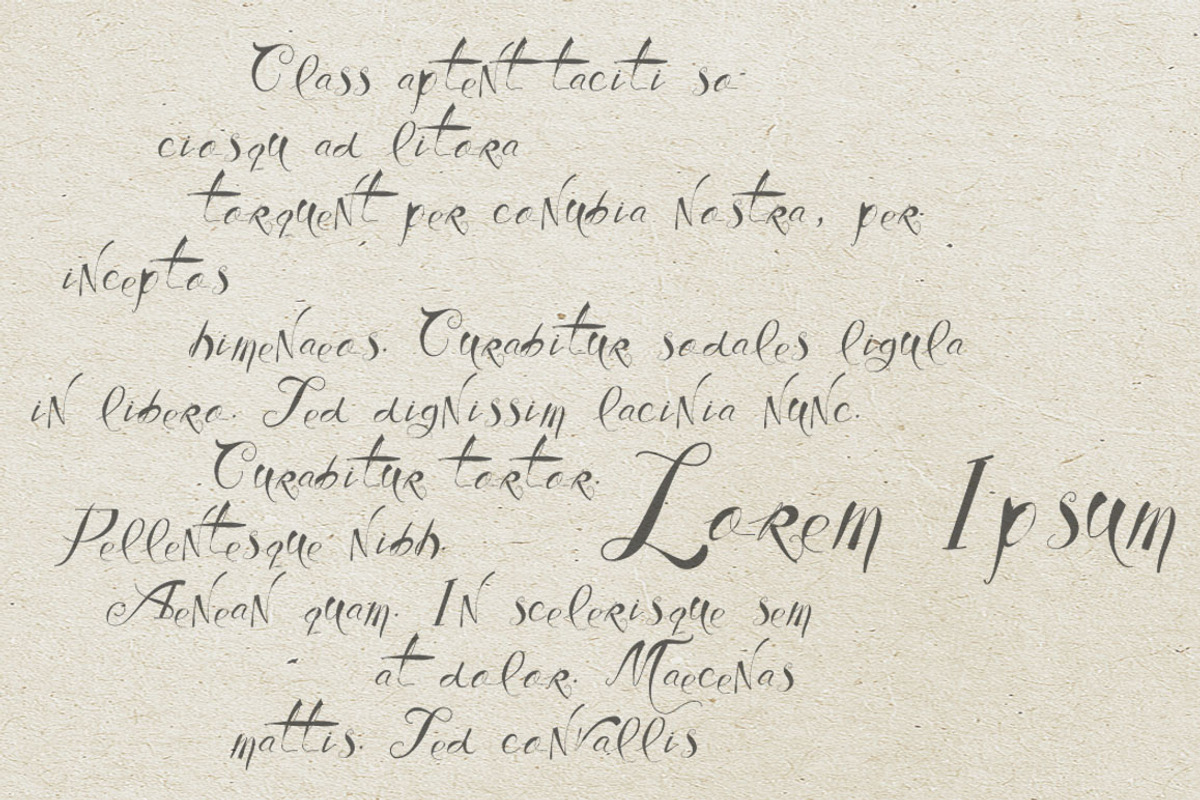 Class aptent taciti so-
ciosqu ad litora
torquent per conubia nostra, per
inceptos
himenaeos. Curabitur sodales ligula
in libero. Sed dignissim lacinia nunc.
Curabitur tortor.
Pellentesque nibh.
Aenean quam. In scelerisque sem
at dolor. Maecenas
mattis. Sed convallis
Lorem Ipsum